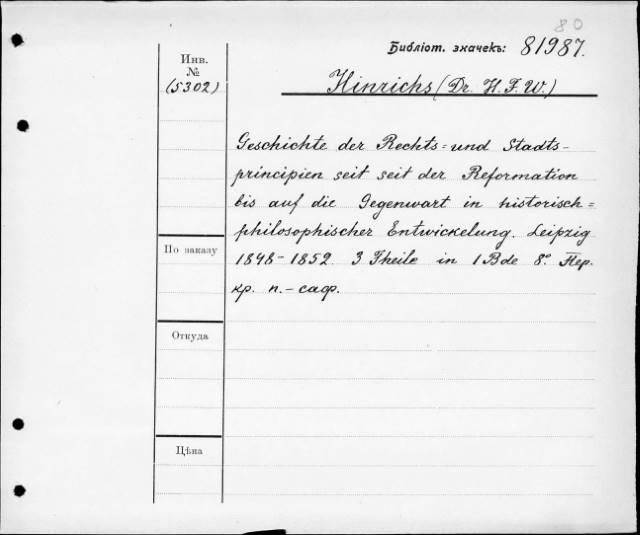 80
Библіот. значекъ: 81987.
Инв.
№
(5302)
Hinrichs (Dr. H. F. W.)
Geschichte der Rechts= und Stadts-
principien seit seit der Reformation
bis auf die Gegenwart in historisch=
philosophischer Entwickelung. Leipzig
1848-1852. 3 Theile in 1 Bde 8º. Пер.
кр. п.-саф.
По заказу
Откуда
Цѣна